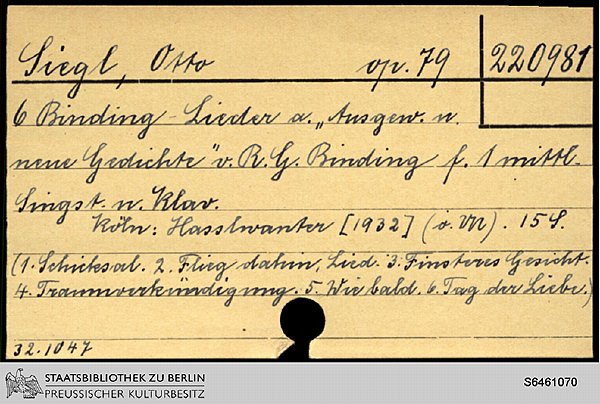 Siegl, Otto op. 79 220981
6 Binding-Lieder a. „Ausgew. u.
neue Gedichte" v. R. G. Binding f. 1 mittl.
Singst. u. Klav.
Köln: Hasslwanter [1932] (o. VN). 15 S.
(1. Schicksal. 2. Flieg dahin, Lied. 3. Finsteres Gesicht.
4. Traumverkündigung. 5. Wie bald. 6. Tag der Liebe.)
32.1047
STAATSBIBLIOTHEK ZU BERLIN
PREUSSISCHER KULTURBESITZ
S6461070